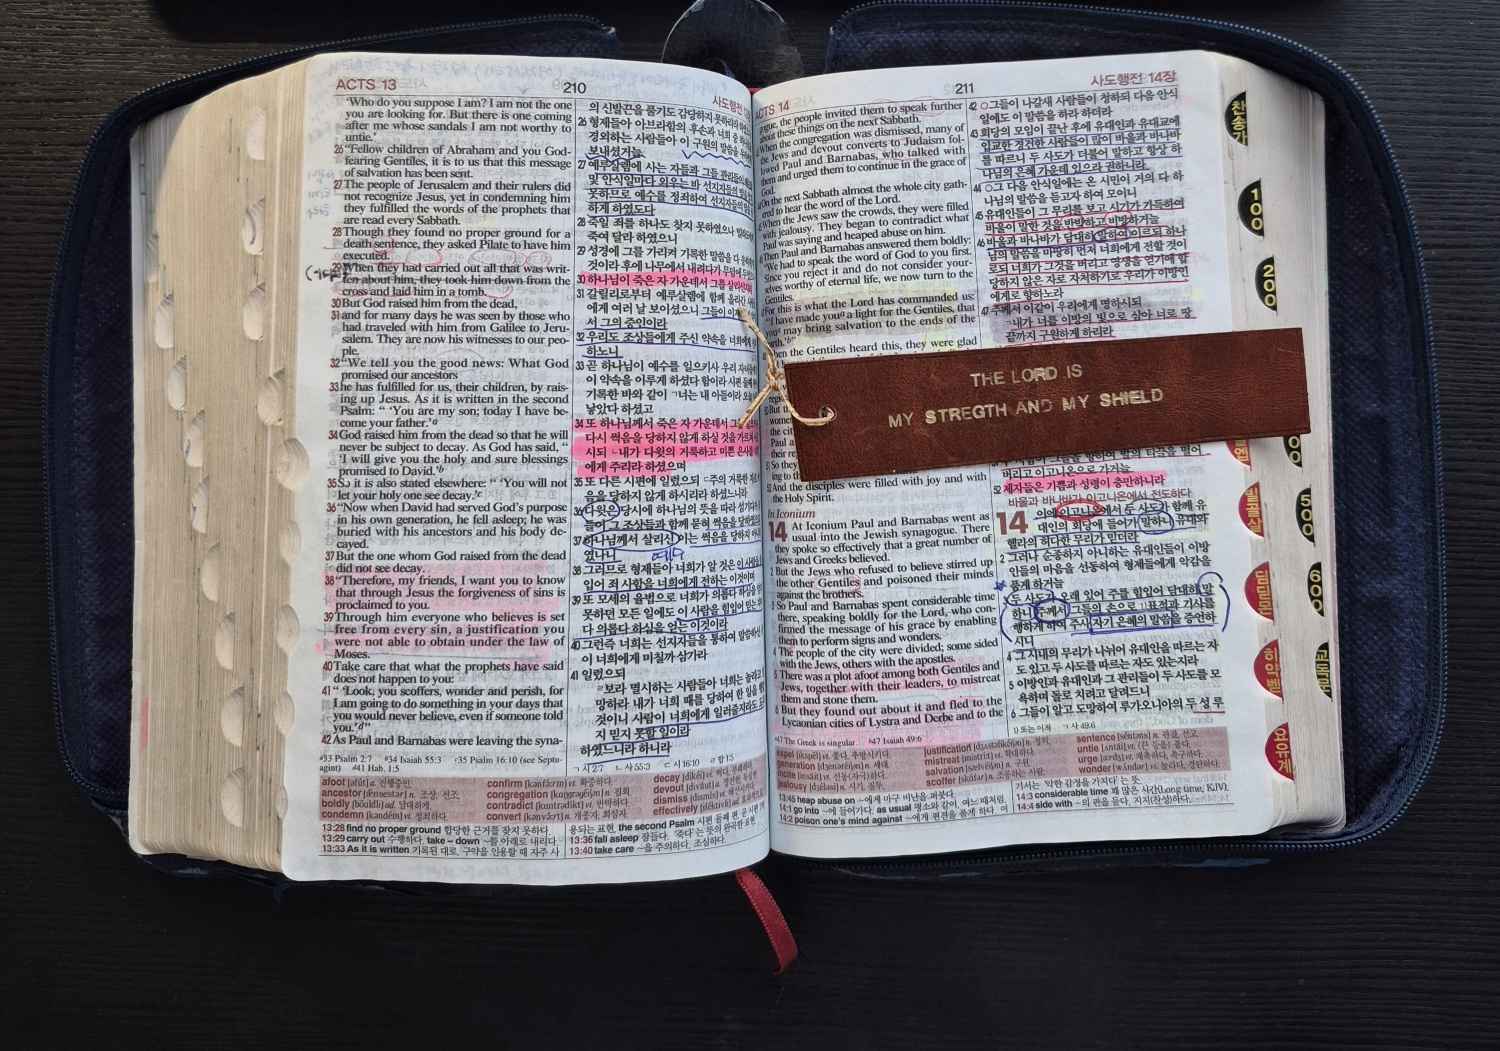 ACTS 13
210
'Who do you suppose I am? I am not the one
you are looking for. But there is one coming
after me whose sandals I am not worthy to
untie.'
26 "Fellow children of Abraham and you God-
fearing Gentiles, it is to us that this message
of salvation has been sent.
27 The people of Jerusalem and their rulers did
not recognize Jesus, yet in condemning him
they fulfilled the words of the prophets that
are read every Sabbath.
28 Though they found no proper ground for a
death sentence, they asked Pilate to have him
executed.
29 When they had carried out all that was writ-
ten about him, they took him down from the
cross and laid him in a tomb.
30 But God raised him from the dead,
31 and for many days he was seen by those who
had traveled with him from Galilee to Jeru-
salem. They are now his witnesses to our peo-
ple.
32 "We tell you the good news: What God
promised our ancestors
33 he has fulfilled for us, their children, by rais-
ing up Jesus. As it is written in the second
Psalm: " 'You are my son; today I have be-
come your father.'a
34 God raised him from the dead so that he will
never be subject to decay. As God has said, "
'I will give you the holy and sure blessings
promised to David.'b
35 So it is also stated elsewhere: " 'You will not
let your holy one see decay.'c
36 "Now when David had served God's purpose
in his own generation, he fell asleep; he was
buried with his ancestors and his body de-
cayed.
37 But the one whom God raised from the dead
did not see decay.
38 "Therefore, my friends, I want you to know
that through Jesus the forgiveness of sins is
proclaimed to you.
39 Through him everyone who believes is set
free from every sin, a justification you
were not able to obtain under the law of
Moses.
40 Take care that what the prophets have said
does not happen to you:
41 " 'Look, you scoffers, wonder and perish, for
I am going to do something in your days that
you would never believe, even if someone told
you.'d"
42 As Paul and Barnabas were leaving the syna-
a33 Psalm 2:7 b34 Isaiah 55:3 c35 Psalm 16:10 (see Septu-
agint) d41 Hab. 1:5
사도행전
의 신발끈을 풀기도 감당하지 못하리라
26 형제들아 아브라함의 후손과 너희 중
경외하는 사람들아 이 구원의 말씀을
보내셨거늘
27 예루살렘에 사는 자들과 그들 관리들이
및 안식일마다 외우는 바 선지자들의
못하므로 예수를 정죄하여 선지자들의
하게 하였도다
28 죽일 죄를 하나도 찾지 못하였으나
죽여 달라 하였으니
29 성경에 그를 가리켜 기록한 말씀을 다
것이라 후에 나무에서 내려다가 무덤에
30 하나님이 죽은 자 가운데서 그를 살리신지라
31 갈릴리로부터 예루살렘에 함께 올라간
에게 여러 날 보이셨으니 그들이
서 그의 증인이라
32 우리도 조상들에게 주신 약속을 너희에게
하노니
33 곧 하나님이 예수를 일으키사 우리
이 약속을 이루게 하셨다 함이라 시편
기록한 바와 같이 너는 내 아들이라 오늘
낳았다 하셨고
34 또 하나님께서 죽은 자 가운데서
다시 썩음을 당하지 않게 하실 것을
시되 내가 다윗의 거룩하고 미쁜 은사를
에게 주리라 하셨으며
35 또 다른 시편에 일렀으되 주의 거룩한
음을 당하지 않게 하시리라 하셨느니라
36 다윗은 당시에 하나님의 뜻을 따라 섬기다가
들어 그 조상들과 함께 묻혀 썩음을 당하였으되
37 하나님께서 살리신 이는 썩음을 당하지
였나니
38 그러므로 형제들아 너희가 알 것은 이 사람을
입어 죄 사함을 너희에게 전하는 이것이며
39 또 모세의 율법으로 너희가 의롭다 하심을
못하던 모든 일에도 이 사람을 힘입어 믿는
다 의롭다 하심을 얻는 이것이라
40 그런즉 너희는 선지자들을 통하여 말씀하신
이 너희에게 미칠까 삼가라
41 일렀으되
보라 멸시하는 사람들아 너희는 놀라고
망하라 내가 너희 때를 당하여 한 일을
것이니 사람이 너희에게 일러줄지라도
지 믿지 못할 일이라
하였느니라 하니라
ㄱ 시 2:7 ㄴ 사 55:3 ㄷ 시 16:10 ㄹ 합 1:5
afoot
ancestor
boldly
condemn
confirm
congregation
contradict
convert
decay
devout
dismiss
effectively
13:28 find no proper ground 합당한 근거를 찾지 못하다.
13:29 carry out 수행하다. take ~ down ~를 아래로 내리다.
13:33 As it is written 기록된 대로.
the second Psalm 시편
13:36 fall asleep 잠들다.
13:40 take care ~을 주의하다, 조심하다.
ACTS 14
211
사도행전 14장
gogue, the people invited them to speak further
about these things on the next Sabbath.
When the congregation was dismissed, many of
the Jews and devout converts to Judaism fol-
lowed Paul and Barnabas, who talked with
them and urged them to continue in the grace of
God.
On the next Sabbath almost the whole city gath-
ered to hear the word of the Lord.
When the Jews saw the crowds, they were filled
with jealousy. They began to contradict what
Paul was saying and heaped abuse on him.
Then Paul and Barnabas answered them boldly:
"We had to speak the word of God to you first.
Since you reject it and do not consider your-
selves worthy of eternal life, we now turn to the
Gentiles.
For this is what the Lord has commanded us:
" 'I have made you a light for the Gentiles, that
you may bring salvation to the ends of the
earth.'b"
When the Gentiles heard this, they were glad
And the disciples were filled with joy and with
the Holy Spirit.
In Iconium
14 At Iconium Paul and Barnabas went as
usual into the Jewish synagogue. There
they spoke so effectively that a great number of
Jews and Greeks believed.
2 But the Jews who refused to believe stirred up
the other Gentiles and poisoned their minds
against the brothers.
3 So Paul and Barnabas spent considerable time
there, speaking boldly for the Lord, who con-
firmed the message of his grace by enabling
them to perform signs and wonders.
4 The people of the city were divided; some sided
with the Jews, others with the apostles.
5 There was a plot afoot among both Gentiles and
Jews, together with their leaders, to mistreat
them and stone them.
6 But they found out about it and fled to the
Lycaonian cities of Lystra and Derbe and to the
a47 The Greek is singular. b47 Isaiah 49:6
42 ○그들이 나갈새 사람들이 청하되 다음 안식
일에도 이 말씀을 하라 하더라
43 회당의 모임이 끝난 후에 유대인과 유대교에
입교한 경건한 사람들이 많이 바울과 바나바
를 따르니 두 사도가 더불어 말하고 항상 하
나님의 은혜 가운데 있으라 권하니라
44 ○그 다음 안식일에는 온 시민이 거의 다 하
나님의 말씀을 듣고자 하여 모이니
45 유대인들이 그 무리를 보고 시기가 가득하여
바울이 말한 것을 반박하고 비방하거늘
46 바울과 바나바가 담대히 말하여 이르되 하나
님의 말씀을 마땅히 먼저 너희에게 전할 것이
로되 너희가 그것을 버리고 영생을 얻기에 합
당하지 않은 자로 자처하기로 우리가 이방인
에게로 향하노라
47 주께서 이같이 우리에게 명하시되
내가 너를 이방의 빛으로 삼아 너로 땅
끝까지 구원하게 하리라
THE LORD IS
MY STREGTH AND MY SHIELD
버리고 이고니온으로 가거늘
52 제자들은 기쁨과 성령이 충만하니라
바울과 바나바가 이고니온에서 전도하다
14 이에 이고니온에서 두 사도가 함께 유
대인의 회당에 들어가 말하니 유대와
헬라의 허다한 무리가 믿더라
2 그러나 순종하지 아니하는 유대인들이 이방
인들의 마음을 선동하여 형제들에게 악감을
품게 하거늘
3 두 사도가 오래 있어 주를 힘입어 담대히 말
하니 주께서 그들의 손으로 표적과 기사를
행하게 하여 주사 자기 은혜의 말씀을 증언하
시니
4 그 시내의 무리가 나뉘어 유대인을 따르는 자
도 있고 두 사도를 따르는 자도 있는지라
5 이방인과 유대인과 그 관리들이 두 사도를 모
욕하며 돌로 치려고 달려드니
6 그들이 알고 도망하여 루가오니아의 두 성 루
1) 또는 이제 ㄱ 사 49:6
justification
mistreat
salvation
scoffer
sentence
untie
urge
wonder
13:45 heap abuse on ~에게 마구 비난을 퍼붓다.
14:1 go into ~에 들어가다. as usual 평소와 같이, 여느 때처럼.
14:2 poison one's mind against ~에게 편견을 품게 하다.
14:3 considerable time 꽤 많은 시간(Long time, KJV).
14:4 side with ~의 편을 들다, 지지(찬성)하다.
찬송가
100
200
500
600
교독문
빌골살
딤딛몬
히약벧
요유계